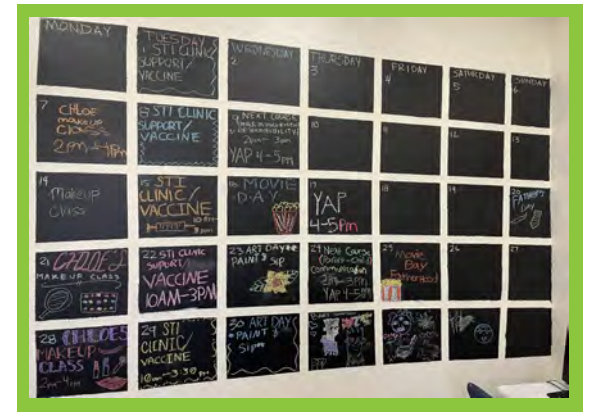 MONDAY
TUESDAY
1 STI CLINIC
SUPPORT/
VACCINE
WEDNESDAY
2
THURSDAY
3
FRIDAY
4
SATURDAY
5
SUNDAY
6
7
CHLOE
makeup
CLASS
2pm-4pm
8 STI CLINIC
SUPPORT/
VACCINE
9 NEXT COURSE
2pm - 3pm
YAP 4-5pm
10
11
12
13
14
Makeup
Class
15 STI
CLINIC/
VACCINE
16 MOVIE
DAY
17
YAP
4-5pm
18
19
20
FATHERS
DAY
21 CHLOES
MAKEUP CLASS
22 STI CLINIC
SUPPORT/
VACCINE
10AM-3PM
23 ART DAY
PAINT & Sip
24 Next Course
(Parent-Child)
communication
2pm-3pm
YAP 4-5pm
25
Movie
Day
Fatherhood
26
27
28 CHLOES
MAKEUP
CLASS
2pm-4pm
29 STI
CLINIC/
VACCINE
10am-3:30pm
30 ART DAY
PAINT &
Sip